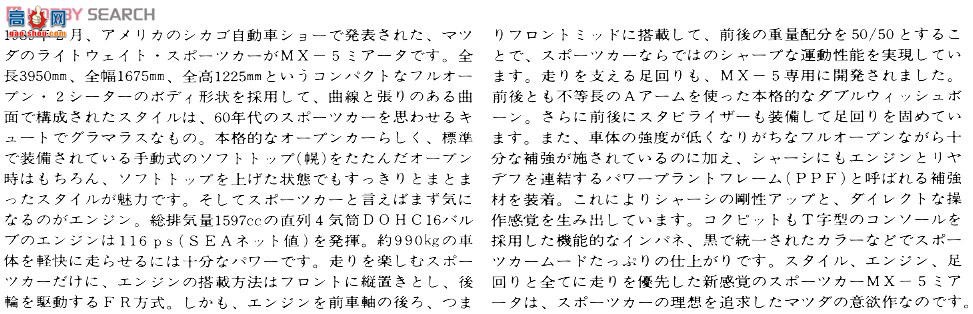 HOBBY SEARCH
高网
1989年2月、アメリカのシカゴ自動車ショーで発表された、マツ
ダのライトウェイト・スポーツカーがＭＸ－５ミアータです。全
長3950㎜、全幅1675㎜、全高1225㎜というコンパクトなフルオー
プン・２シーターのボディ形状を採用して、曲線と張りのある曲
面で構成されたスタイルは、60年代のスポーツカーを思わせるキ
ュートでグラマラスなもの。本格的なオープンカーらしく、標準
で装備されている手動式のソフトトップ(幌)をたたんだオープン
時はもちろん、ソフトトップを上げた状態でもすっきりとまとま
ったスタイルが魅力です。そしてスポーツカーと言えばまず気に
なるのがエンジン。総排気量1597ccの直列４気筒ＤＯＨＣ16バル
ブのエンジンは116ps(ＳＥＡネット値)を発揮。約990kgの車
体を軽快に走らせるには十分なパワーです。走りを楽しむスポー
ツカーだけに、エンジンの搭載方法はフロントに縦置きとし、後
輪を駆動するＦＲ方式。しかも、エンジンを前車軸の後ろ、つま
りフロントミッドに搭載して、前後の重量配分を50/50とするこ
とで、スポーツカーならではのシャープな運動性能を実現してい
ます。走りを支える足回りも、ＭＸ－５専用に開発されました。
前後とも不等長のＡアームを使った本格的なダブルウィッシュボ
ーン。さらに前後にスタビライザーも装備して足回りを固めてい
ます。また、車体の強度が低くなりがちなフルオープンながら十
分な補強が施されているのに加え、シャーシにもエンジンとリヤ
デフを連結するパワープラントフレーム(ＰＰＦ)と呼ばれる補強
材を装着。これによりシャーシの剛性アップと、ダイレクトな操
作感覚を生み出しています。コクピットもＴ字型のコンソールを
採用した機能的なインパネ、黒で統一されたカラーなどでスポー
ツカームードたっぷりの仕上がりです。スタイル、エンジン、足
回りと全てに走りを優先した新感覚のスポーツカーＭＸ－５ミア
ータは、スポーツカーの理想を追求したマツダの意欲作なのです。